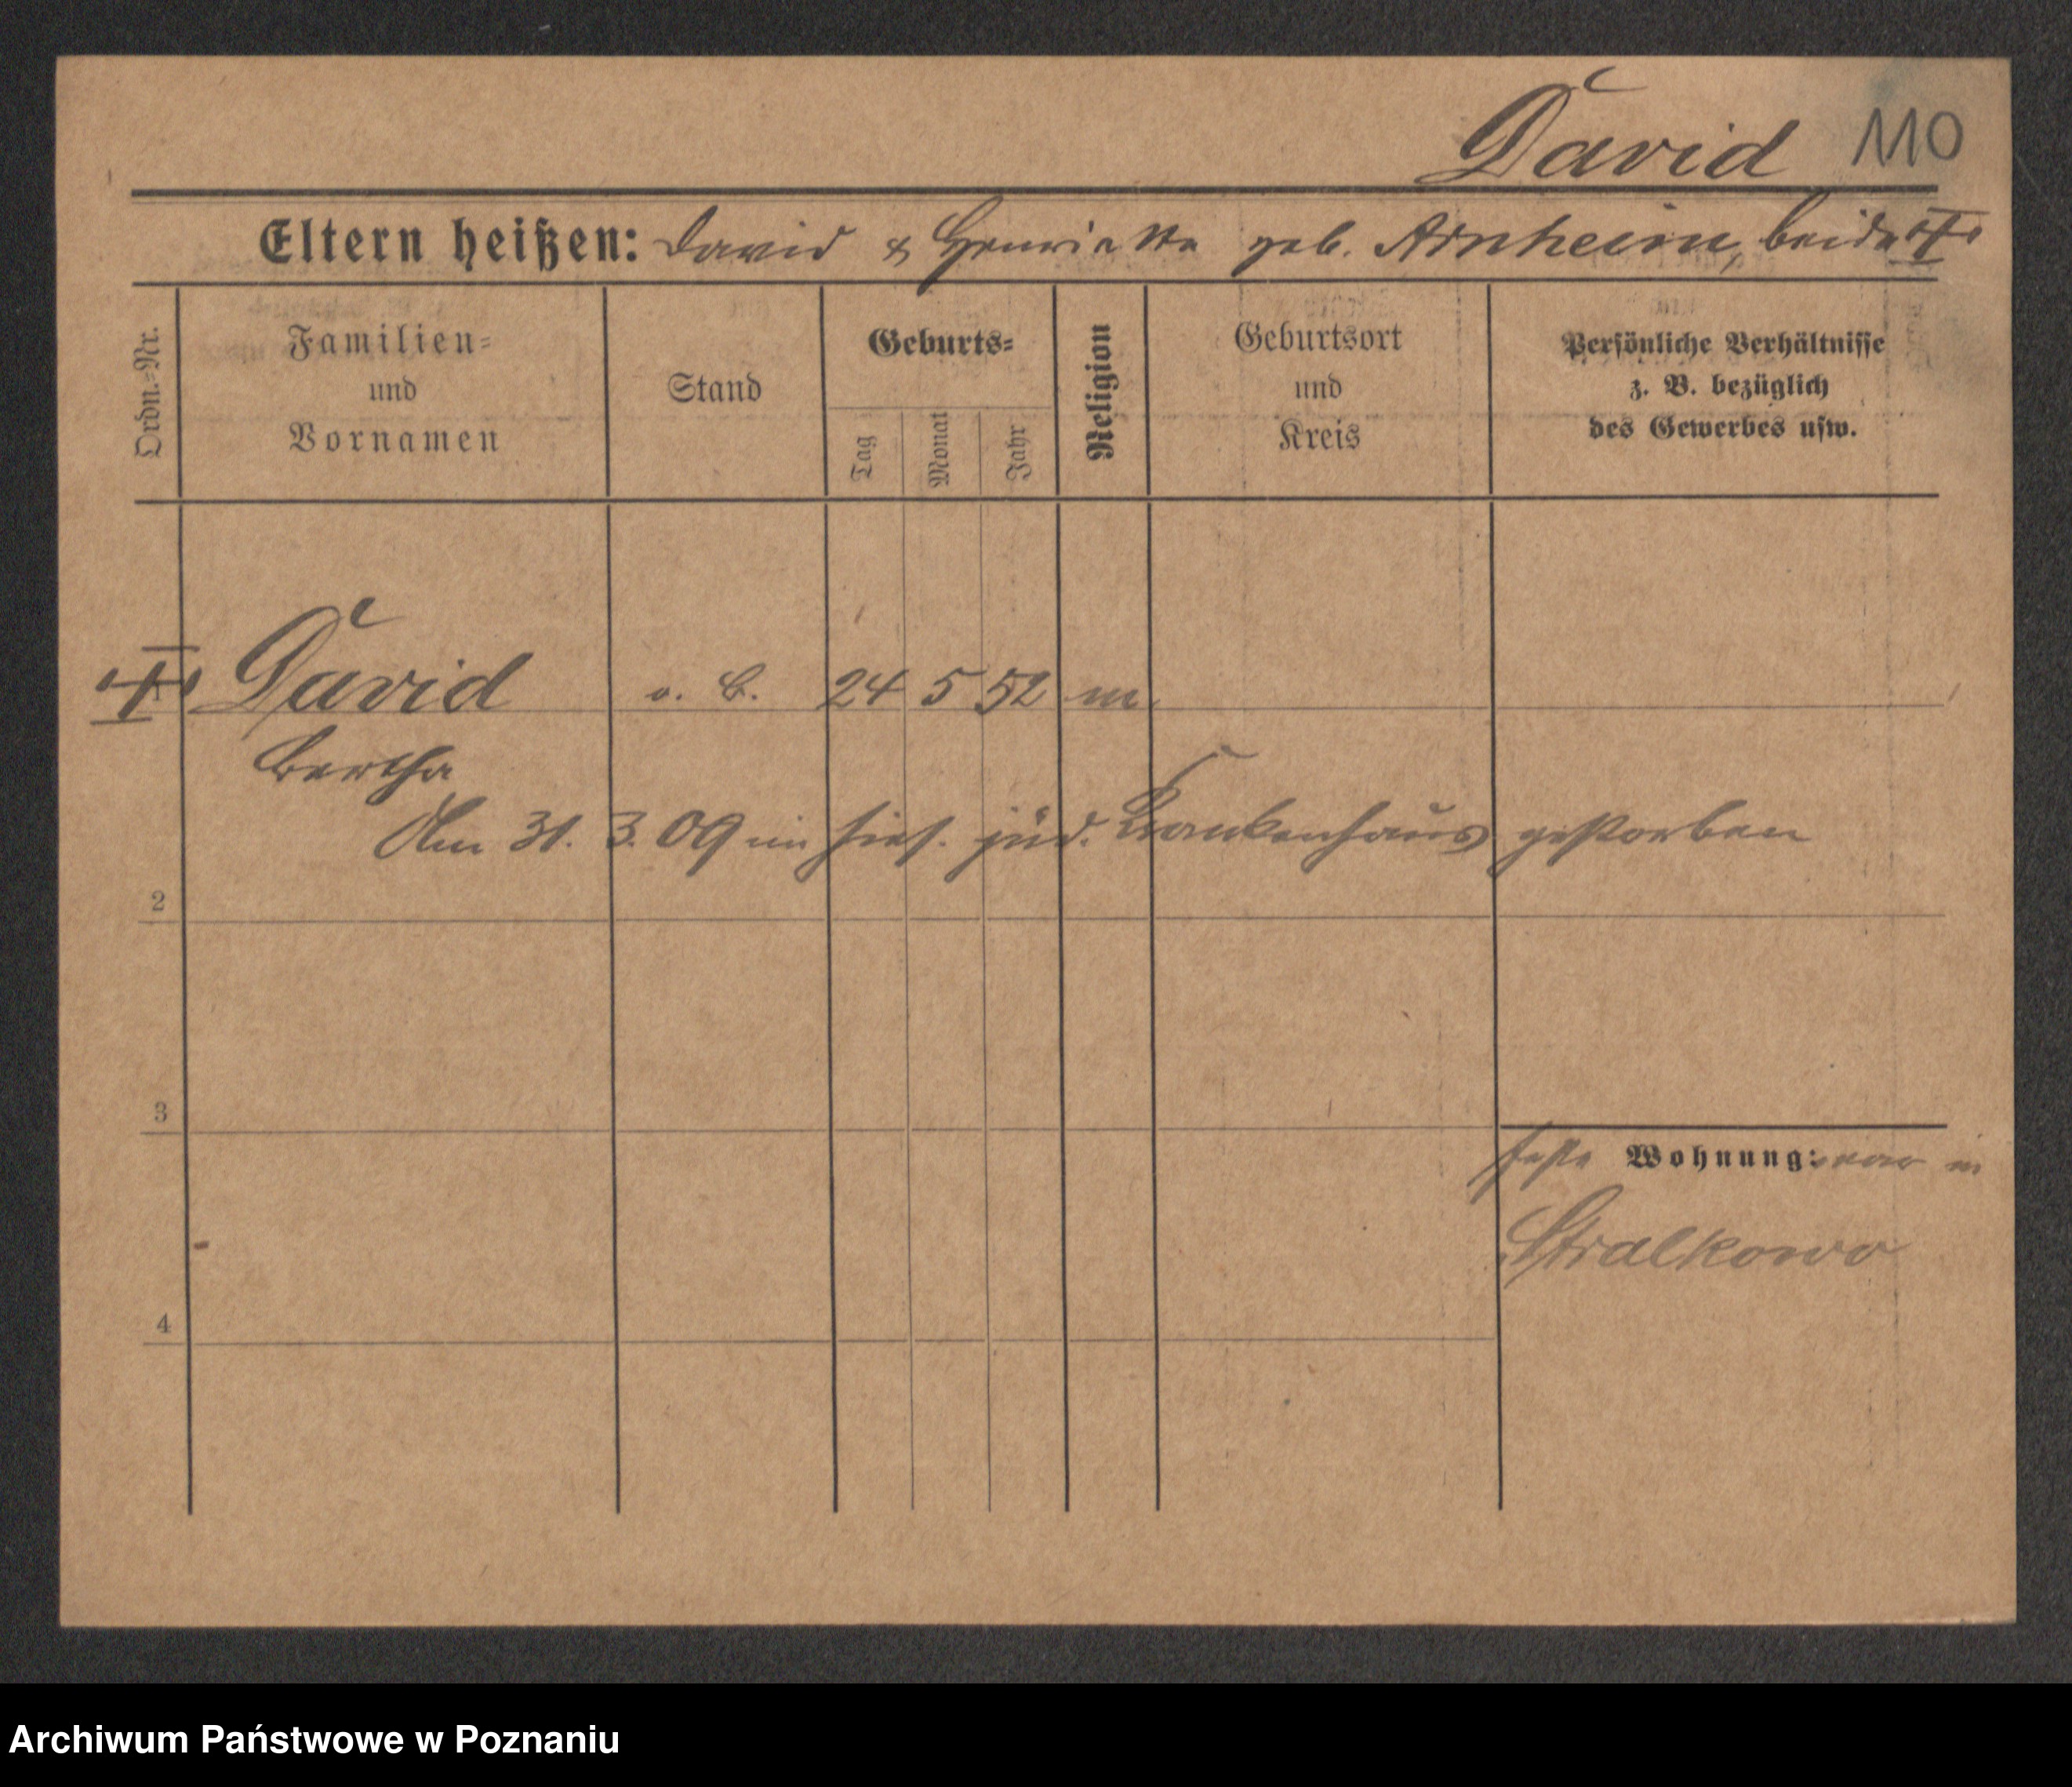 David 110
Eltern heißen: David & Henriette geb. Arnheim, beide
Ordn.-Nr.
Familien-
und
Vornamen
Stand
Geburts-
Tag
Monat
Jahr
Religion
Geburtsort
und
Kreis
Persönliche Verhältnisse
z. B. bezüglich
des Gewerbes usw.
David o. B. 24 5 52 m.
Bertha
Am 31. 3. 09 im hies. jüd. Krankenhaus gestorben
2
3
feste Wohnung: war in
Stralkowo
4
Archiwum Państwowe w Poznaniu